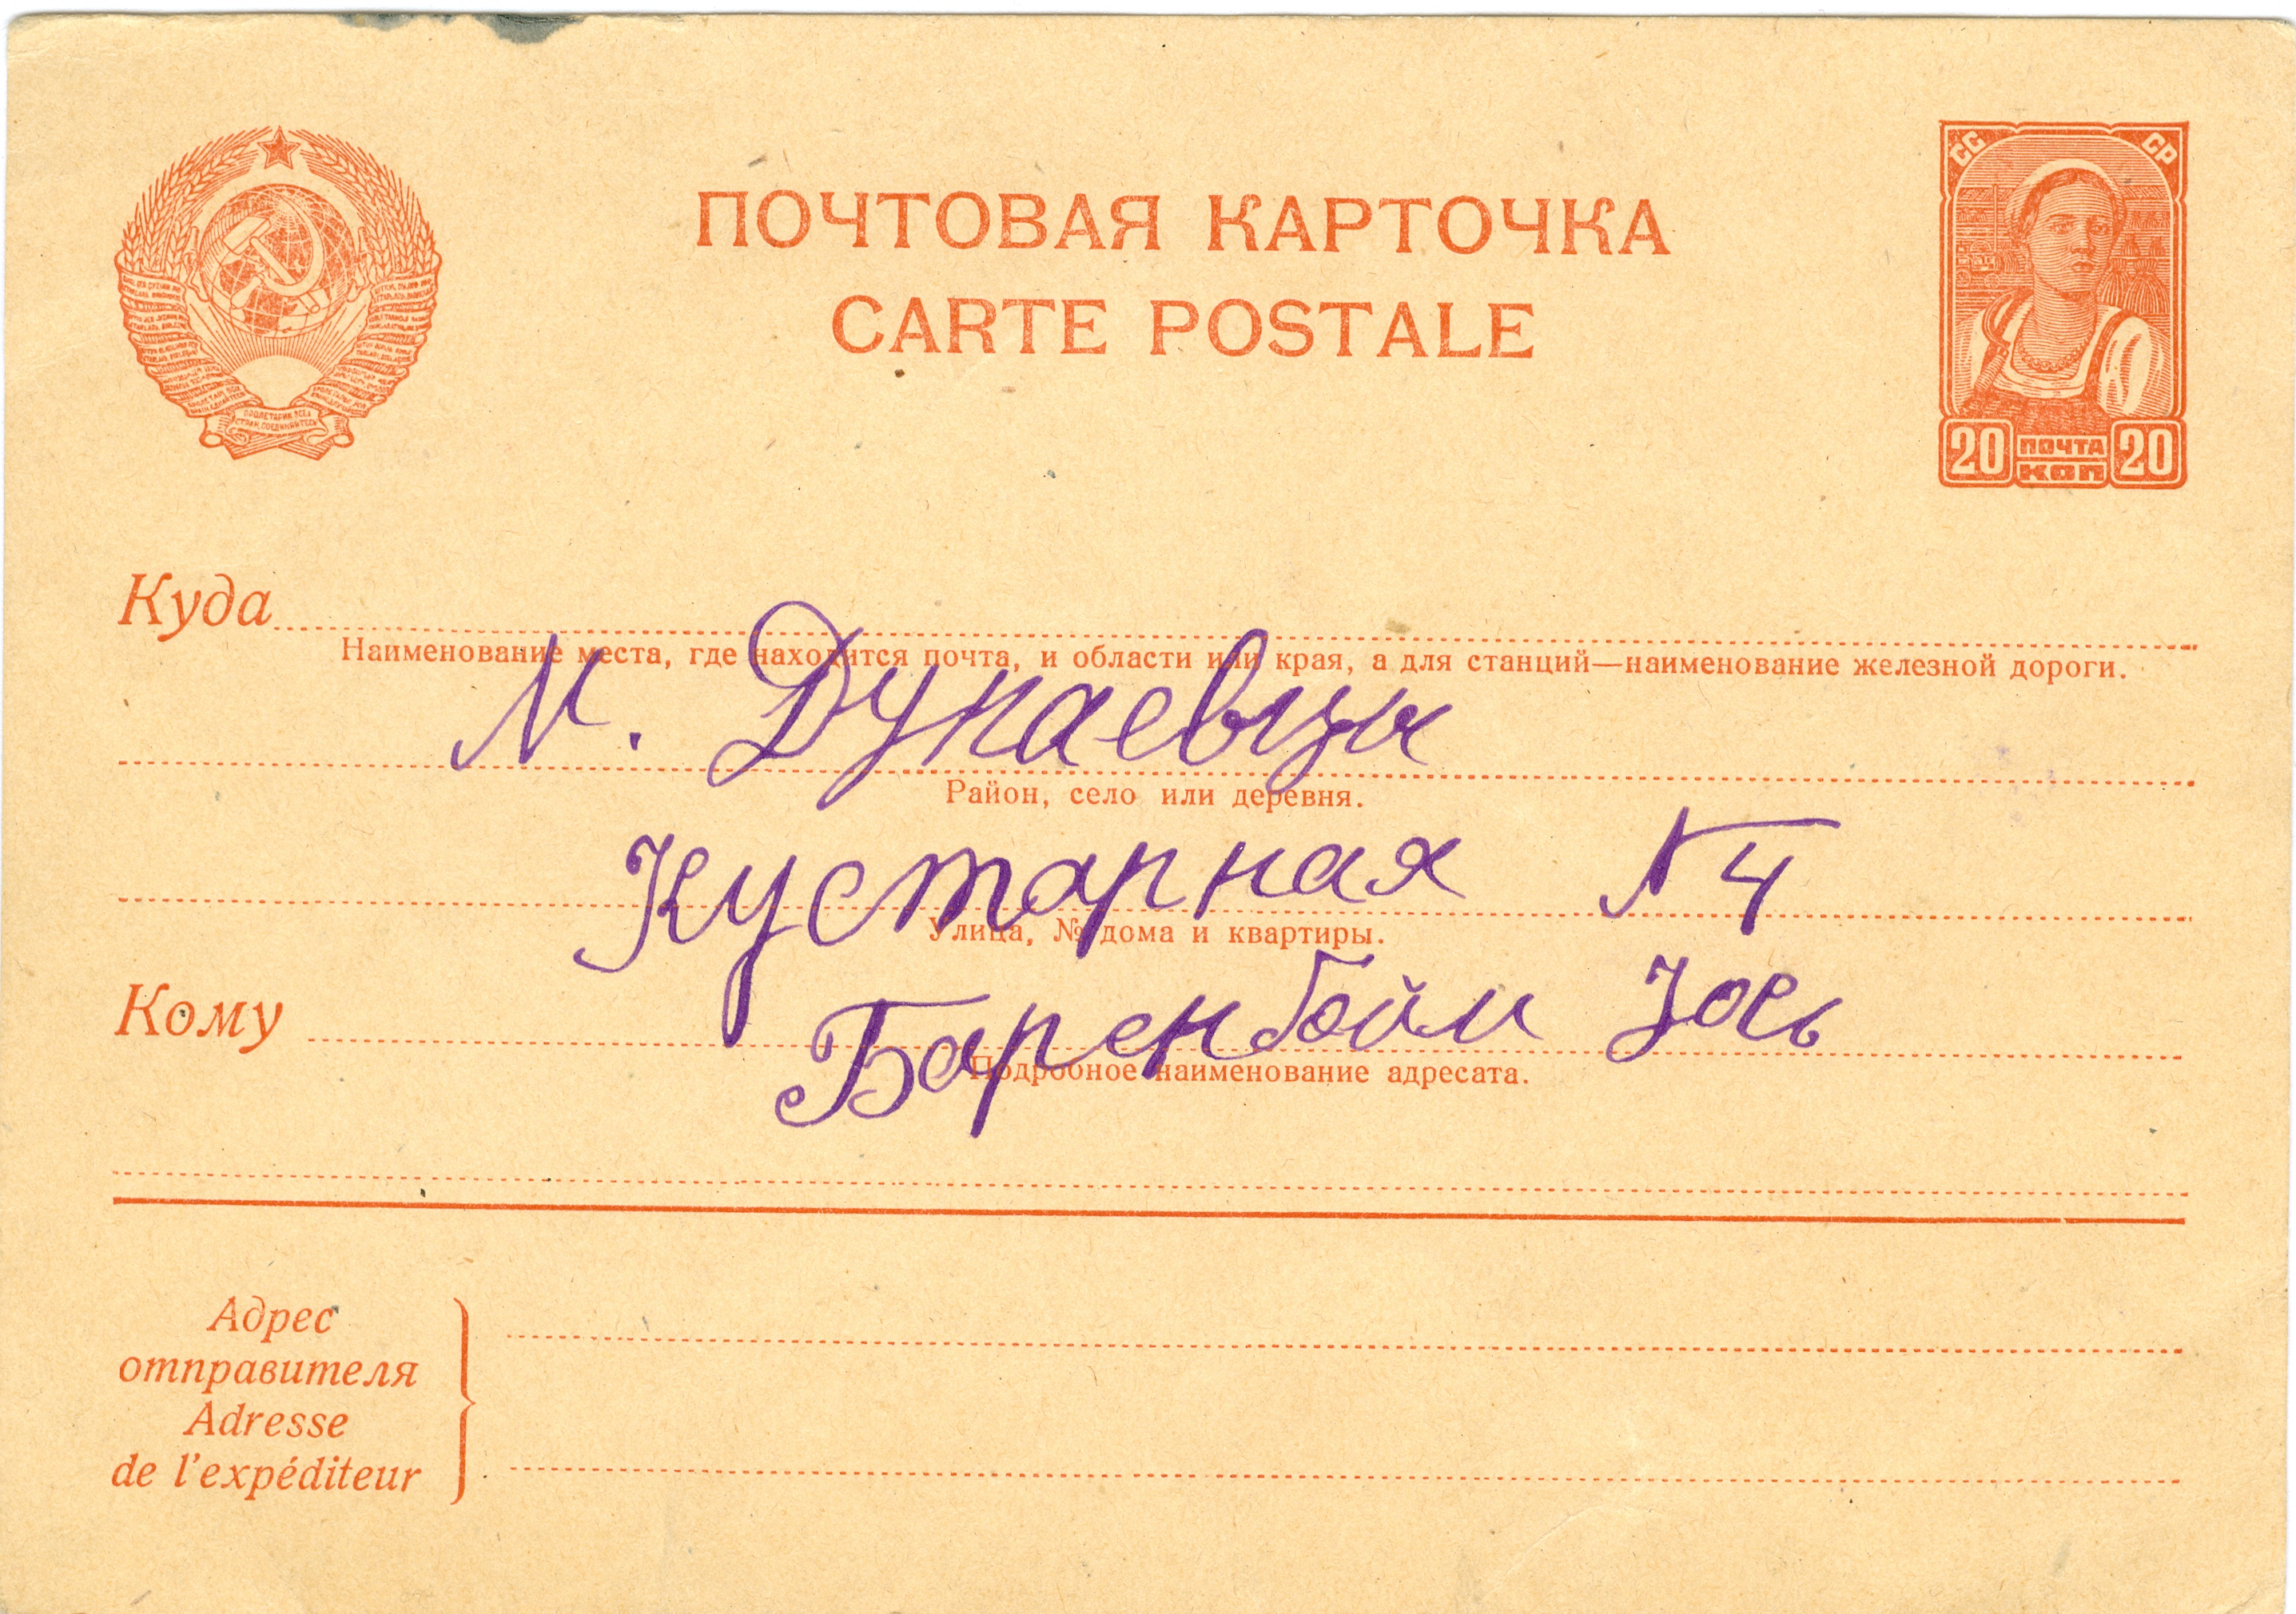 СС СР
ПОЧТОВАЯ КАРТОЧКА
CARTE POSTALE
ПРОЛЕТАРИИ ВСЕХ
СТРАН, СОЕДИНЯЙТЕСЬ
20 ПОЧТА КОП 20
Куда
Наименование места, где находится почта, и области или края, а для станций—наименование железной дороги.
М. Дунаевцы
Район, село или деревня.
Кустарная № 4
Улица, № дома и квартиры.
Кому Баренбойм Зось
Подробное наименование адресата.
Адрес
отправителя
Adresse
de l'expéditeur